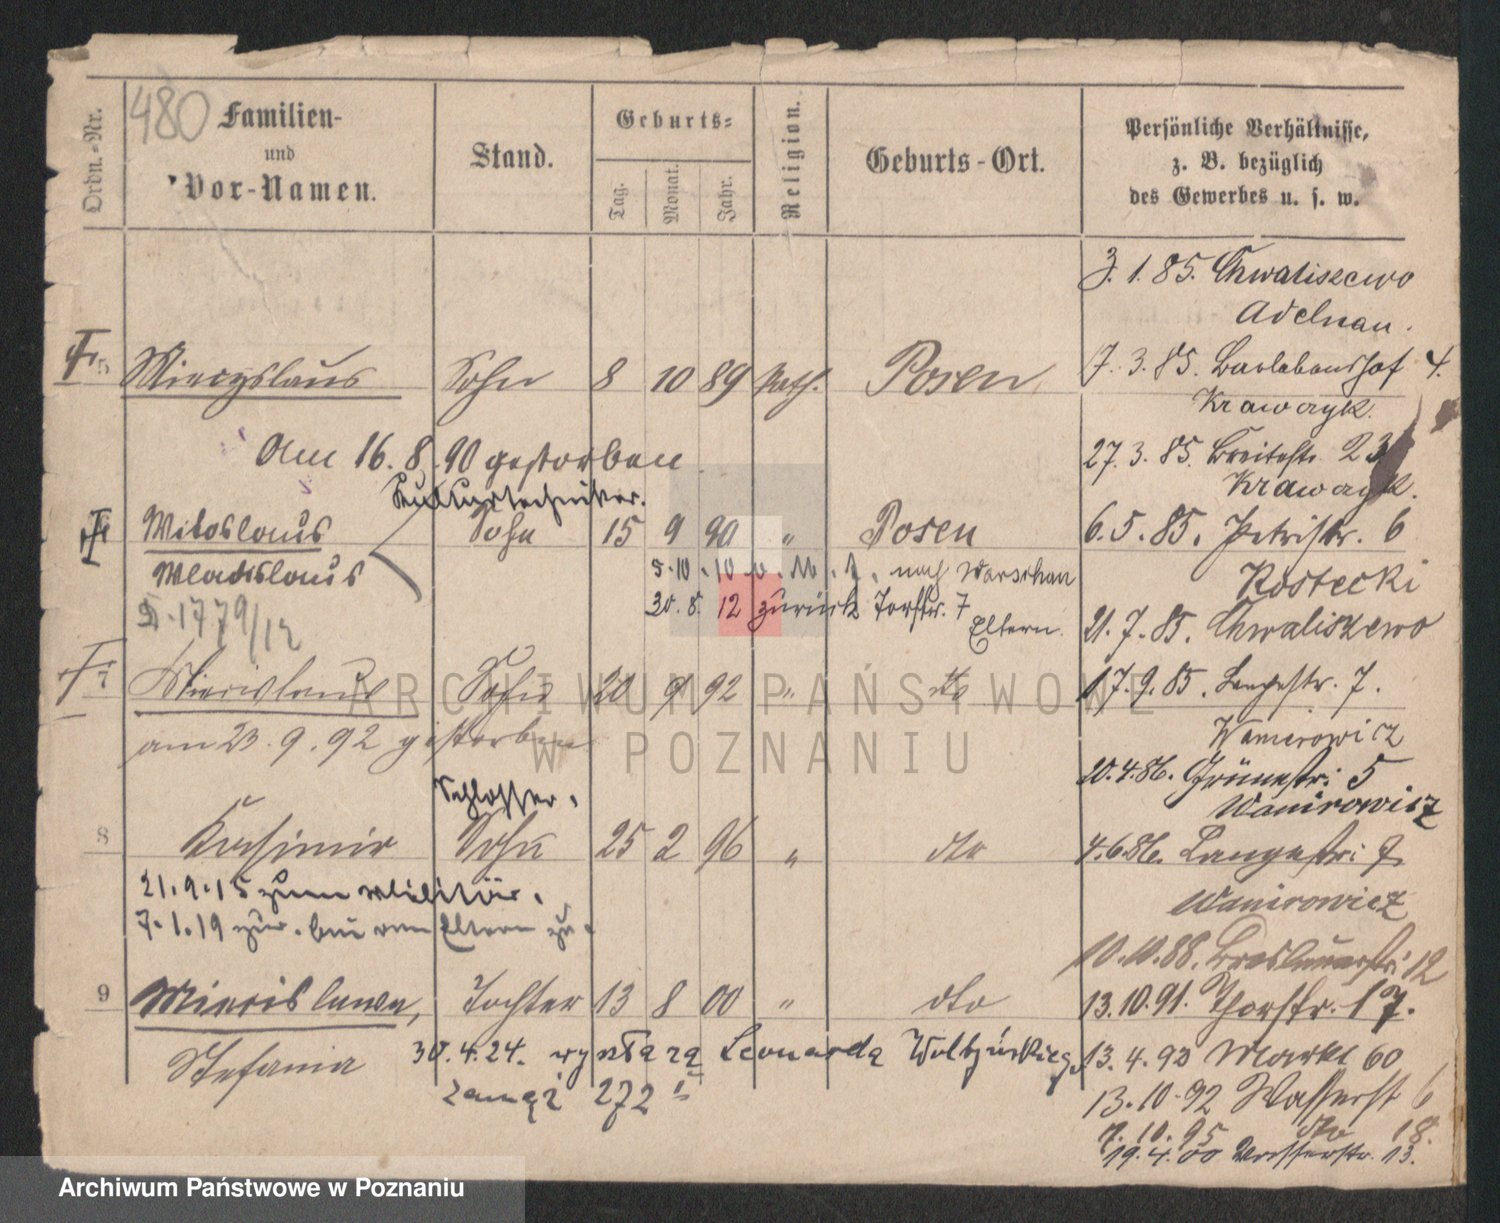 480
Ordn.-Nr.
Familien-
und
Vor-Namen.
Stand.
Geburts-
Tag.
Monat.
Jahr.
Religion.
Geburts-Ort.
Persönliche Verhältnisse,
z. B. bezüglich
des Gewerbes u. s. w.
3. 1. 85. Chwaliszewo
Adelnau.
5 Miecyslaus Sohn 8 10 89 kath. Posen
17. 3. 85. 4.
Krawczyk.
Am 16. 8. 90 gestorben
27. 3. 85. Breitestr. 23
Krawczyk.
Kulturtechniker.
Witoslaus Sohn 15 9 90 " Posen
6. 5. 85. Petristr. 6
Wladislaus
5.10.10 nach Warschau
Rostecki
30. 8. 12 zurück Torstr. 7
Eltern.
1779/12
21. 7. 85. Chwaliszewo
7 Sohn 20 9 92 " dto
17. 9. 85. Langestr. 7.
am 23. 9. 92 gestorben
Wanierowicz
20. 4. 86. Grünestr. 5
Wanirowicz
Schlosser.
8 Kasimir Sohn 25 2 96 " dto
4. 6. 86. Langestr. 7
21.9.15 zum Militär.
Wanirowicz
7.1.19 zur. bei den Eltern zu.
10. 10. 88. Breslauerstr. 12
9 Miecislawa, Tochter 13 8 00 " dto
13. 10. 91. Thorstr. 17.
Stefania
30.4.24. wyszła za Leonarda
13. 4. 92 Markt 60
272
13. 10. 92 Wasserst 6
7. 10. 95 dto 18.
19. 4. 00 Wasserstr. 13.
ARCHIWUM PAŃSTWOWE
W POZNANIU
Archiwum Państwowe w Poznaniu